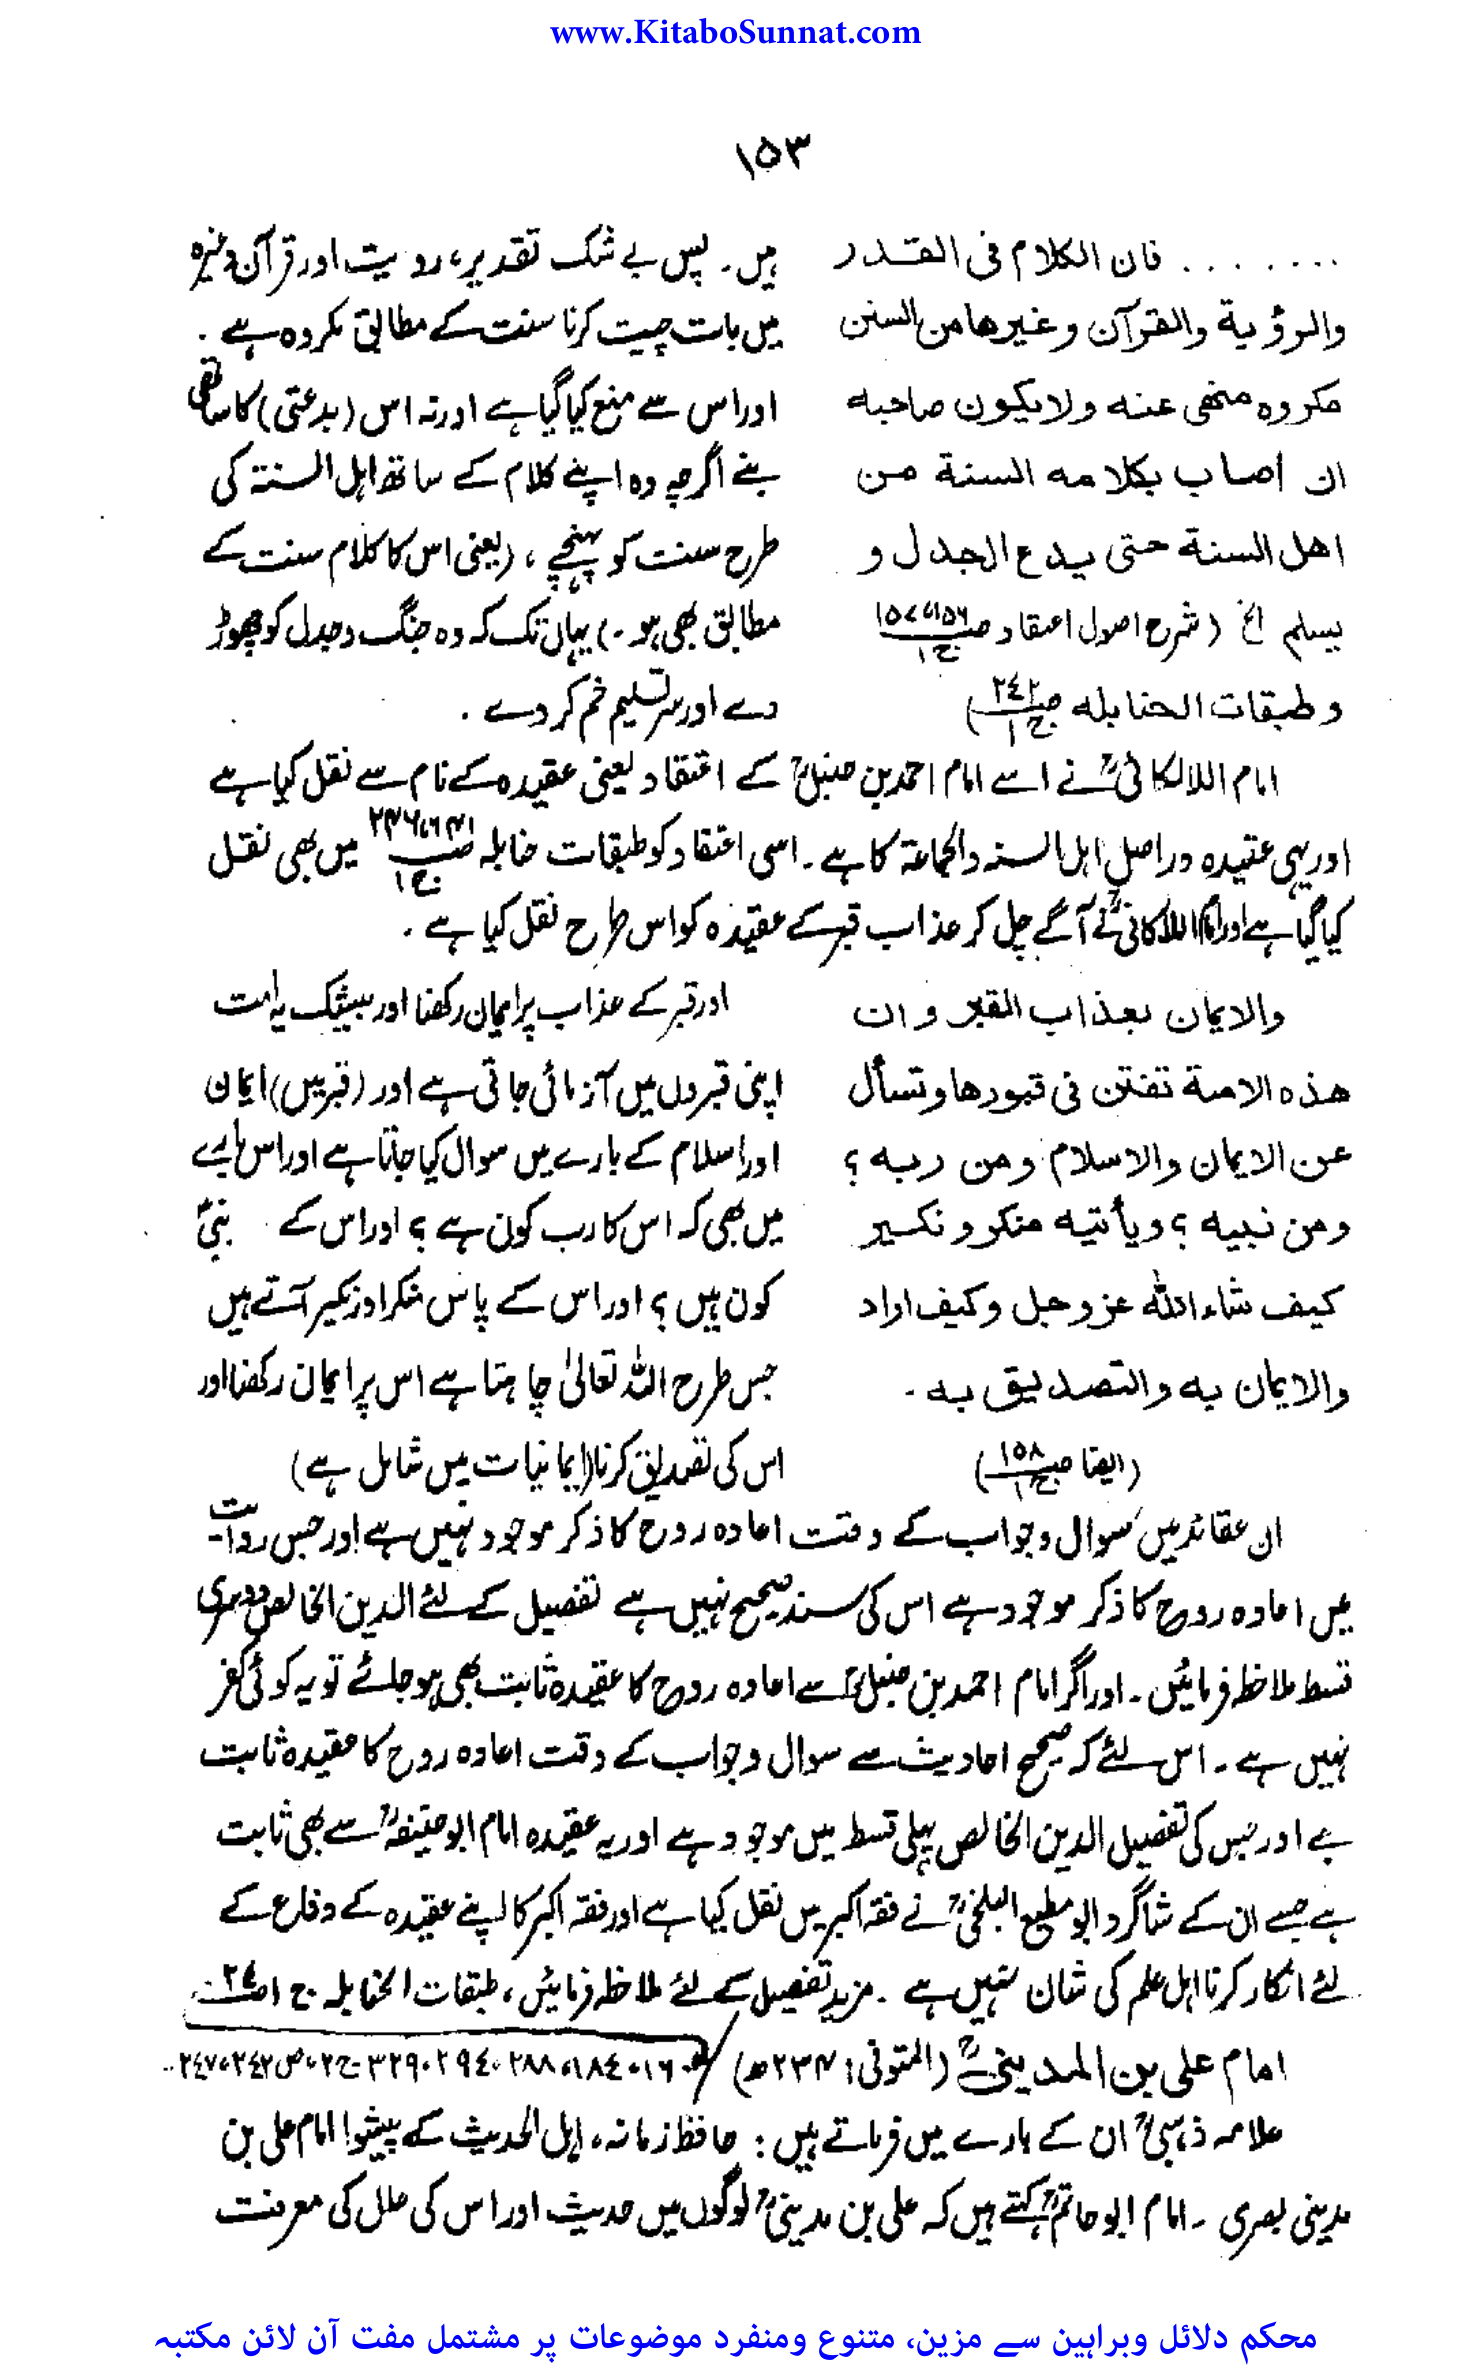 www.KitaboSunnat.com
۱۵۳
....... فان الکلام فی القدر
والرؤیة والقرآن وغیرھا من السنن
مکروہ منھی عنه ولا یکون صاحبه
ان اصاب بکلامه السنة من
اھل السنة حتی یدع الجدل و
یسلم الخ (شرح اصول اعتقاد ص۱۵۶، ۱۵۷ ج۱
و طبقات الحنابله ص۲٤۲ ج۱)
ہیں۔ پس بے شک تقدیر، رویت اور قرآن وغیرہ
میں بات چیت کرنا سنت کے مطابق مکروہ ہے۔
اور اس سے منع کیا گیا ہے اور نہ اس (بدعتی) کا ساتھی
بنے اگرچہ وہ اپنے کلام کے ساتھ اہل السنۃ کی
طرح سنت کو پہنچے، (یعنی اس کا کلام سنت کے
مطابق بھی ہو۔) یہاں تک کہ وہ جنگ و جدل کو چھوڑ
دے اور سر تسلیم خم کر دے۔
امام اللالکائیؒ نے اسے امام احمد بن حنبلؒ کے اعتقاد یعنی عقیدہ کے نام سے نقل کیا ہے
اور یہی عقیدہ دراصل اہل السنہ والجماعۃ کا ہے۔ اسی اعتقاد کو طبقات حنابلہ ص۲۴۱، ۲۴۶ ج۱ میں بھی نقل
کیا گیا ہے اور امام اللالکائیؒ نے آگے چل کر عذاب قبر کے عقیدہ کو اس طرح نقل کیا ہے۔
والایمان بعذاب القبر و ان
ھذه الامة تفتن فی قبورھا وتسأل
عن الایمان والاسلام ومن ربه ؟
ومن نبیه ؟ ویأتیه منکر و نکیر
کیف شاء اللّٰه عز وجل وکیف اراد
والایمان به والتصدیق به ۔
(ایضا ص۱۵۸ ج۱)
اور قبر کے عذاب پر ایمان رکھنا اور بیشک یہ امت
اپنی قبروں میں آزمائی جاتی ہے اور (قبر میں) ایمان
اور اسلام کے بارے میں سوال کیا جاتا ہے اور اس بارے
میں بھی کہ اس کا رب کون ہے ؟ اور اس کے نبیؐ
کون ہیں ؟ اور اس کے پاس منکر اور نکیر آتے ہیں
جس طرح اللہ تعالیٰ چاہتا ہے اس پر ایمان رکھنا اور
اس کی تصدیق کرنا (ایمانیات میں شامل ہے)
ان عقائد میں سوال و جواب کے وقت اعادہ روح کا ذکر موجود نہیں ہے اور جس روایت
میں اعادہ روح کا ذکر موجود ہے اس کی سند صحیح نہیں ہے تفصیل کے لئے الدین الخالص دوسری
قسط ملاحظہ فرمائیں۔ اور اگر امام احمد بن حنبلؒ سے اعادہ روح کا عقیدہ ثابت بھی ہو جائے تو یہ کوئی کفر
نہیں ہے۔ اس لئے کہ صحیح احادیث سے سوال و جواب کے وقت اعادہ روح کا عقیدہ ثابت
ہے اور جس کی تفصیل الدین الخالص پہلی قسط میں موجود ہے اور یہ عقیدہ امام ابو حنیفہؒ سے بھی ثابت
ہے جسے ان کے شاگرد ابو مطیع البلخیؒ نے فقہ اکبر میں نقل کیا ہے اور فقہ اکبر کا اپنے عقیدہ کے دفاع کے
لئے انکار کرنا اہل علم کی شان نہیں ہے۔ مزید تفصیل کے لئے ملاحظہ فرمائیں، طبقات الحنابلہ ج ۱ ص۲٤
۰۱۶، ۱۸٤، ۲۸۸، ۲۹٤، ۳۲۹ ج۲، ص ۲٤۲، ۲٤۷
امام علی بن المدینیؒ (المتوفی: ۲۳۴ھ)
علامہ ذہبیؒ ان کے بارے میں فرماتے ہیں: حافظ زمانہ، اہل الحدیث کے پیشوا امام علی بن
مدینی بصری ۔ امام ابو حاتمؒ کہتے ہیں کہ علی بن مدینیؒ لوگوں میں حدیث اور اس کی علل کی معرفت
محکم دلائل وبراہین سے مزین، متنوع ومنفرد موضوعات پر مشتمل مفت آن لائن مکتبہ